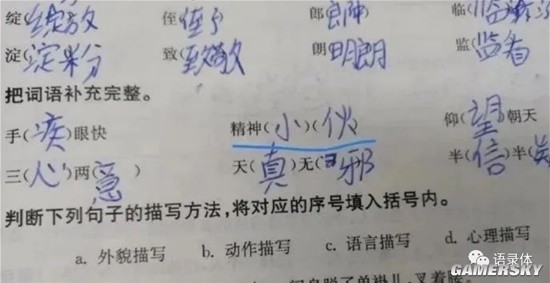 绽(绽放 侄(侄子 郎(郎 临(临
淀(淀粉 致(致敬 朗(明朗 监(监看
把词语补充完整。
手(疾)眼快 精神(小)(伙 仰(望)朝天
三(心)两(意) 天(真)无(邪 半(信)半(
判断下列句子的描写方法,将对应的序号填入括号内。
a. 外貌描写 b. 动作描写 c. 语言描写 d. 心理描写
语录体
GAMERSKY